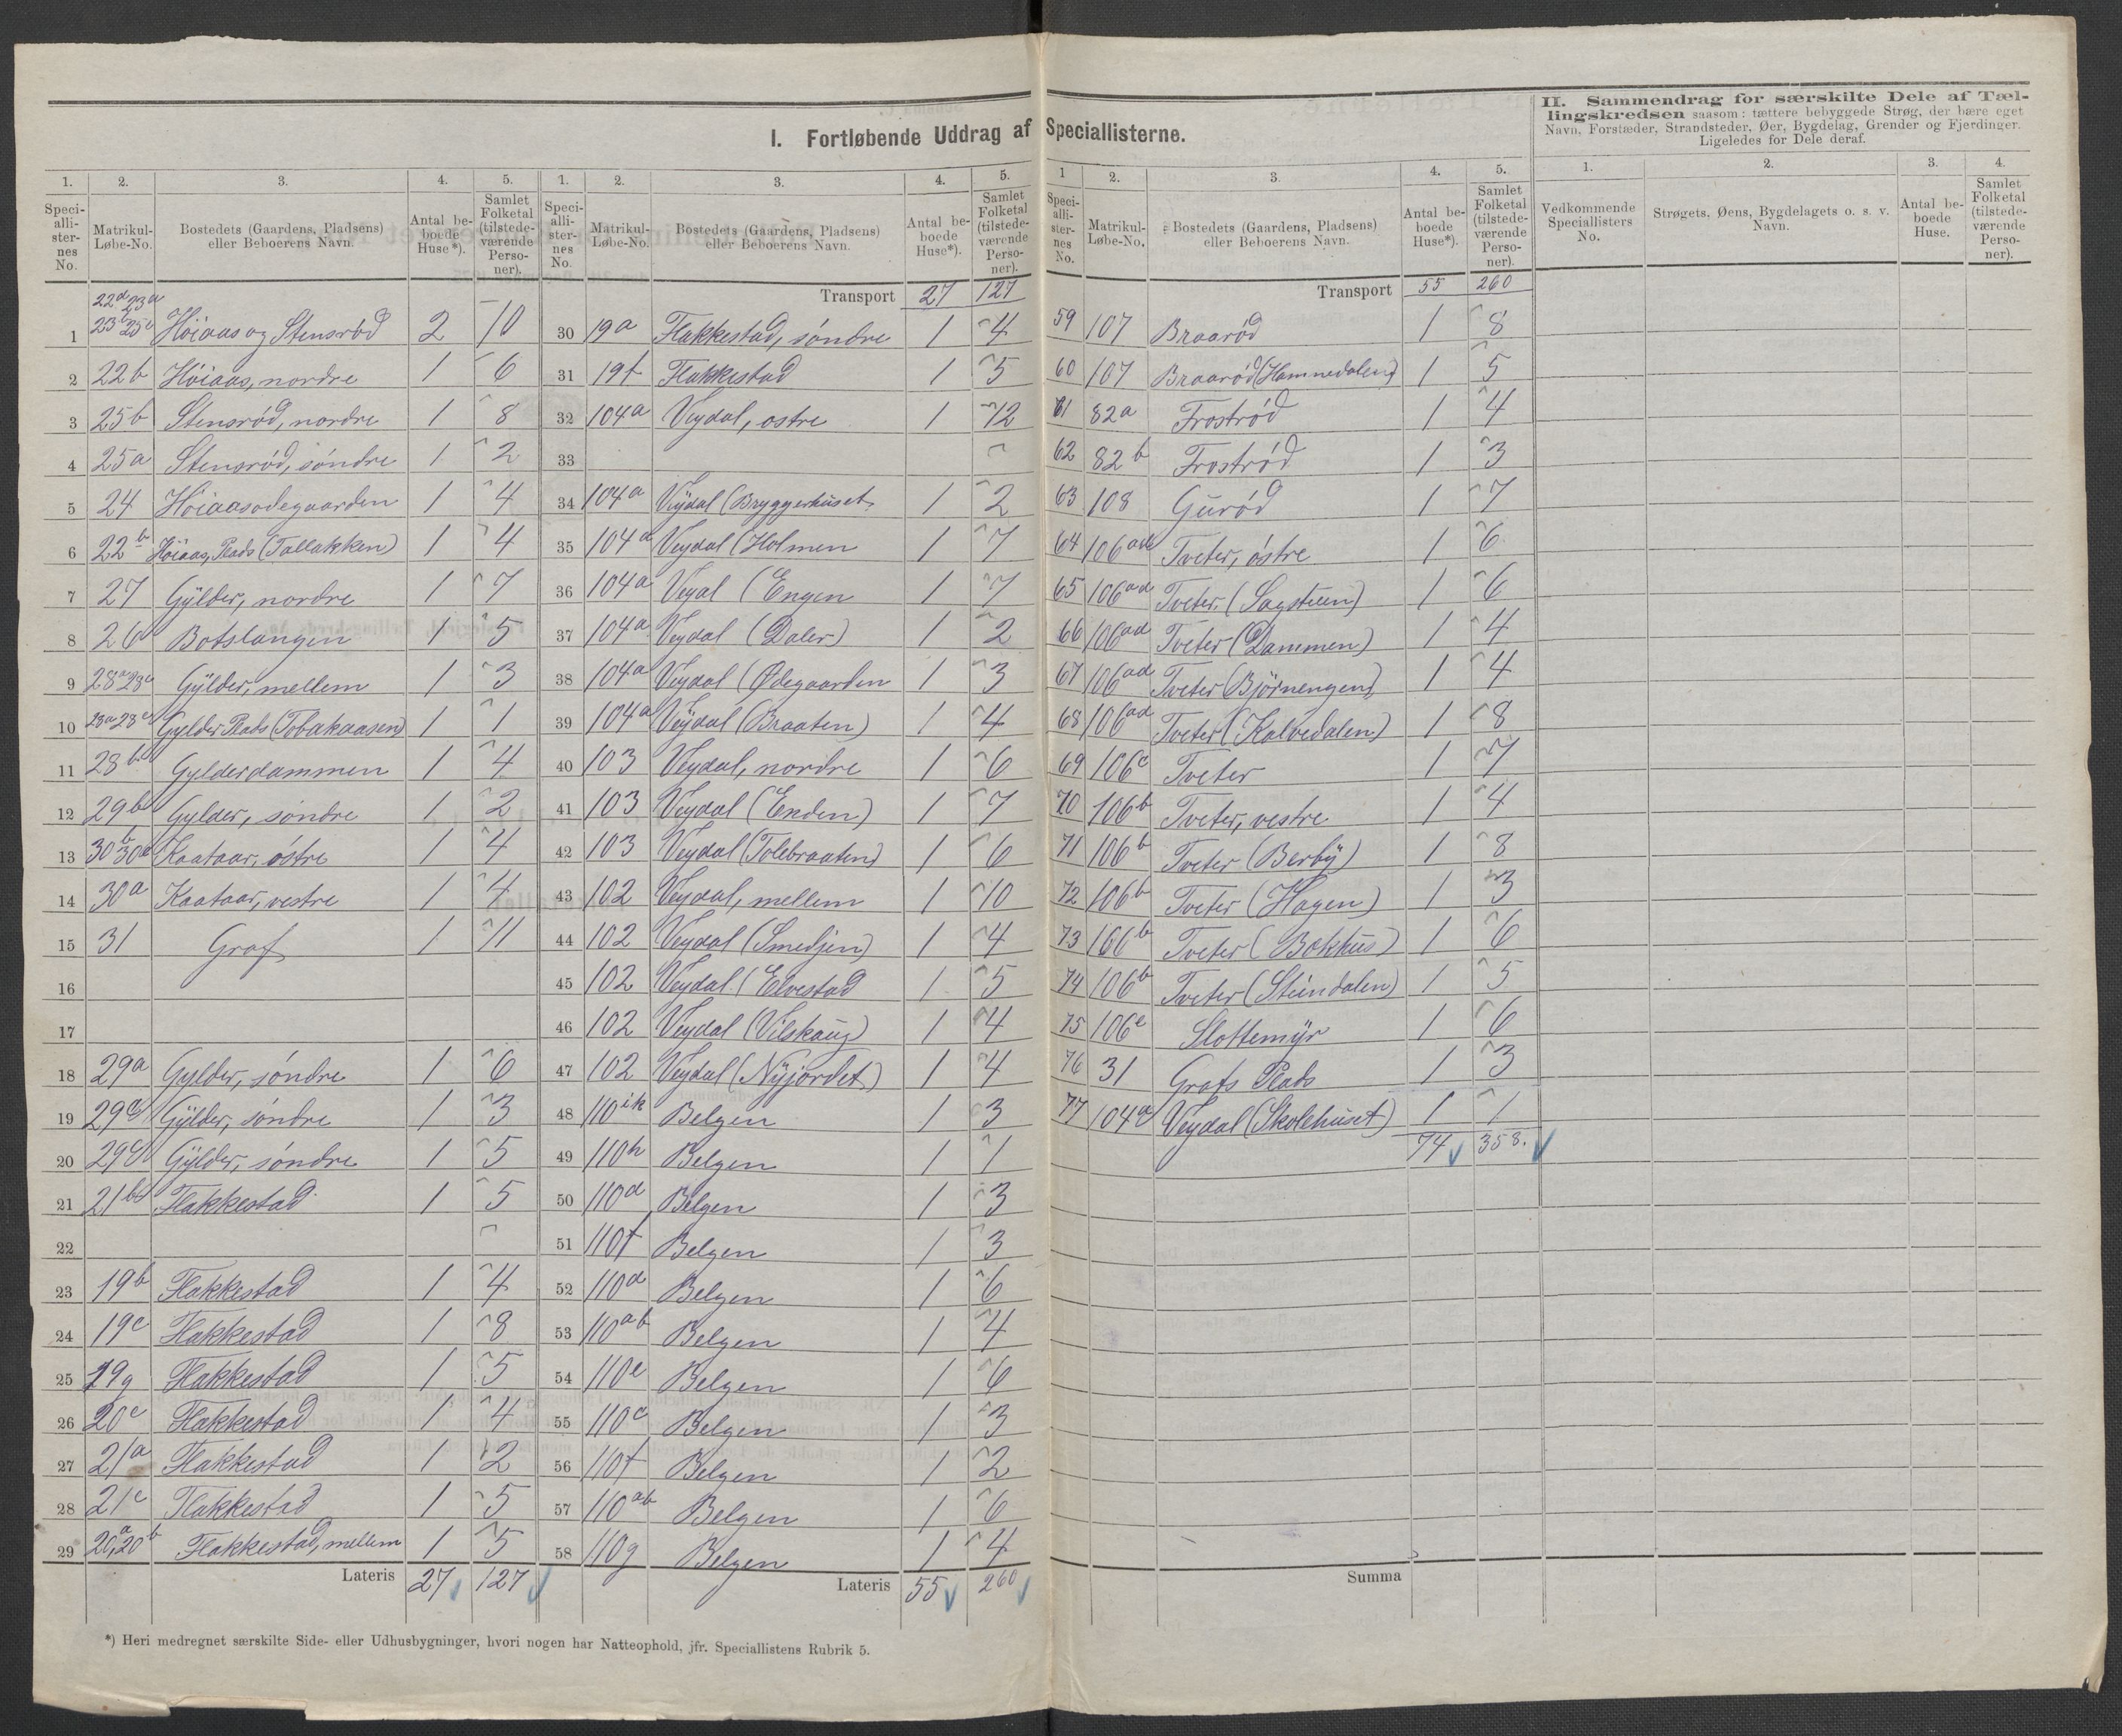 I. Fortløbende Uddrag af Speciallisterne.
1. 2. 3. 4. 5.
Specialli-sternes No. Matrikul-Løbe-No. Bostedets (Gaardens, Pladsens) eller Beboerens Navn. Antal beboede Huse*). Samlet Folketal (tilstedeværende Personer).
1 22d 23a 23b 25c Höiaas og Stensröd 2 10
2 22b Höiaas, nordre 1 6
3 25b Stensröd, nordre 1 8
4 25a Stensröd, söndre 1 2
5 24 Höiaasødegaarden 1 4
6 22b Höiaas, Plads (Tallakken) 1 4
7 27 Gÿlder, nordre 1 7
8 26 Botslangen 1 5
9 28a 28c Gÿlder, mellem 1 3
10 28a 28c Gylder Plads (Tobakaasen) 1 1
11 28b Gylderdammen 1 4
12 29b Gylder, søndre 1 2
13 30b 30c Kaataar, östre 1 4
14 30a Kaataar, vestre 1 4
15 31 Graf 1 11
16
17
18 29a Gylder, söndre 1 6
19 29c Gÿlder, søndre 1 3
20 29d Gÿlder, søndre 1 5
21 21b Flakkestad 1 5
22
23 19b Flakkestad 1 4
24 19c Flakkestad 1 8
25 19g Flakkestad 1 5
26 20c Flakkestad 1 4
27 21a Flakkestad 1 2
28 21c Flakkestad 1 5
29 20a, 20b Flakkestad, mellem 1 5
Lateris 27 127
1. 2. 3. 4. 5.
Specialli-sternes No. Matrikul-Løbe-No. Bostedets (Gaardens, Pladsens) eller Beboerens Navn. Antal beboede Huse*). Samlet Folketal (tilstedeværende Personer).
Transport 27 127
30 19a Flakkestad, söndre 1 4
31 19f Flakkestad 1 5
32 104a Veydal, østre 1 12
33
34 104a Veÿdal (Bryggerhuset 1 2
35 104a Veydal (Holmen 1 7
36 104a Veyal (Engen 1 7
37 104a Veydal (Daler) 1 2
38 104a Veydal (Ødegaarden 1 3
39 104a Veÿdal (Braaten) 1 4
40 103 Veydal, nordre 1 6
41 103 Veydal (Enden) 1 7
42 103 Veydal (Tolebraaten) 1 6
43 102 Veydal, mellem 1 10
44 102 Veydal (Smedjen) 1 4
45 102 Veydal (Elvestad 1 5
46 102 Veydal (Vilskaug) 1 4
47 102 Veydal (Nÿjordet) 1 4
48 110ik Belgen 1 3
49 110h Belgen 1 1
50 110d Belgen 1 3
51 110f Belgen 1 3
52 110d Belgen 1 6
53 110ab Belgen 1 4
54 110e Belgen 1 6
55 110c Belgen 1 3
56 110f Belgen 1 2
57 110ab Belgen 1 6
58 110g Belgen 1 4
Lateris 55 260
1 2. 3. 4. 5.
Specialli-sternes No. Matrikul-Løbe-No. Bostedets (Gaardens, Pladsens) eller Beboerens Navn. Antal beboede Huse*). Samlet Folketal (tilstedeværende Personer).
Transport 55 260
59 107 Braaröd 1 8
60 107 Braaröd (Hamnedalen) 1 5
61 82a Froströd 1 4
62 82b Froströd 1 3
63 108 Guröd 1 7
64 106ad Tveter, östre 1 6
65 106ad Tveter (Sagsteen) 1 6
66 106ad Tveter (Dammen) 1 4
67 106ad Tveter (Björnengen) 1 4
68 106ad Tveter (Kalvedalen) 1 8
69 106c Tveter 1 7
70 106b Tveter, vestre 1 4
71 106b Tveter (Berbÿ) 1 8
72 106b Tveter (Hagen) 1 3
73 106b Tveter (Bakhus) 1 6
74 106b Tveter (Steindalen) 1 5
75 106e Slottemÿr 1 6
76 31 Grafs Plads 1 3
77 104a Veydal (Skolehuset) 1 1
74 358.
Summa
II. Sammendrag for særskilte Dele af Tællingskredsen saasom: tættere bebyggede Strøg, der bære eget Navn, Forstæder, Strandsteder, Øer, Bygdelag, Grender og Fjerdinger. Ligeledes for Dele deraf.
1. 2. 3. 4.
Vedkommende Speciallisters No. Strøgets, Øens, Bygdelagets o. s. v. Navn. Antal beboede Huse. Samlet Folketal (tilstedeværende Personer).
*) Heri medregnet særskilte Side- eller Udhusbygninger, hvori nogen har Natteophold, jfr. Speciallistens Rubrik 5.